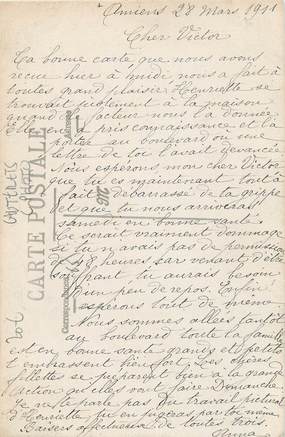 Amiens 28 Mars 1911
Cher Victor
Ta bonne carte que nous avons
recue hier à midi nous a fait à
toutes grand plaisir Henriette se
trouvait justement à la maison
quand le facteur nous l'a donnée
Elle en a pris connaissance et l'a
portée au boulevard ou une
lettre de toi l'avait devancée.
Nous espérons mon cher Victor
que tu es maintenant tout à
fait débarrassé de la grippe
et que tu nous arriveras
samedi en bonne santé
Ce serait vraiment dommage
si tu n'avais pas de permission
48 heures car venant d'être
souffrant tu aurais besoin
d'un peu de repos. Enfin
espérons tout de même
Nous sommes allés tantôt
au boulevard toute la famille
est en bonne santé grands et petits
t'embrassent bien fort. Les chères
fillette se préparent bien à la grande
action qu'elles vont faire Dimanche.
Je ne te parle pas du travail
d'Henriette tu en jugeras par toi même
Baisers affectueux de toutes trois.
CARTE POSTALE
Correspondance